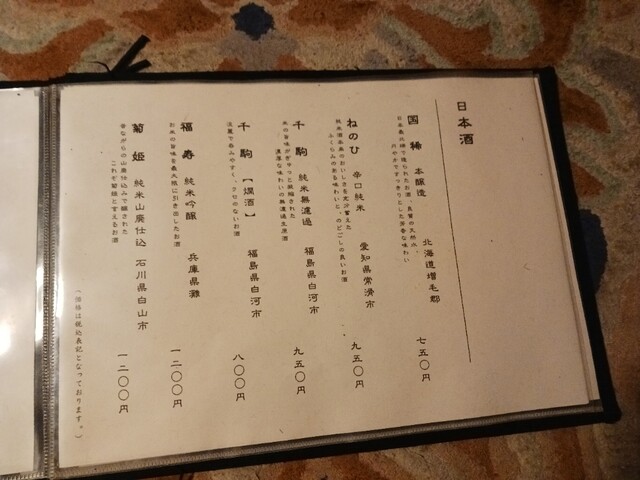 日本酒
国稀 本醸造 北海道増毛郡 七五〇円
日本最北端で造られたお酒、良質の天然水、
爽やかですっきりとした芳香な味わい
ねのひ 辛口純米 愛知県常滑市 九五〇円
純米酒本来のおいしさを充分蓄えた
ふくらみのある味わいと、のどごしの良いお酒
千駒 純米無濾過 福島県白河市 九五〇円
米の旨味がぎゅっと凝縮された
濃厚な味わいの無濾過生原酒
千駒【燗酒】 福島県白河市 八〇〇円
淡麗で呑みやすく、クセのないお酒
福寿 純米吟醸 兵庫県灘 一二〇〇円
お米の旨味を最大限に引き出したお酒
菊姫 純米山廃仕込 石川県白山市 一二〇〇円
昔ながらの山廃仕込みで醸された
これぞ菊姫と言えるお酒
(価格は税込表記となっております。)